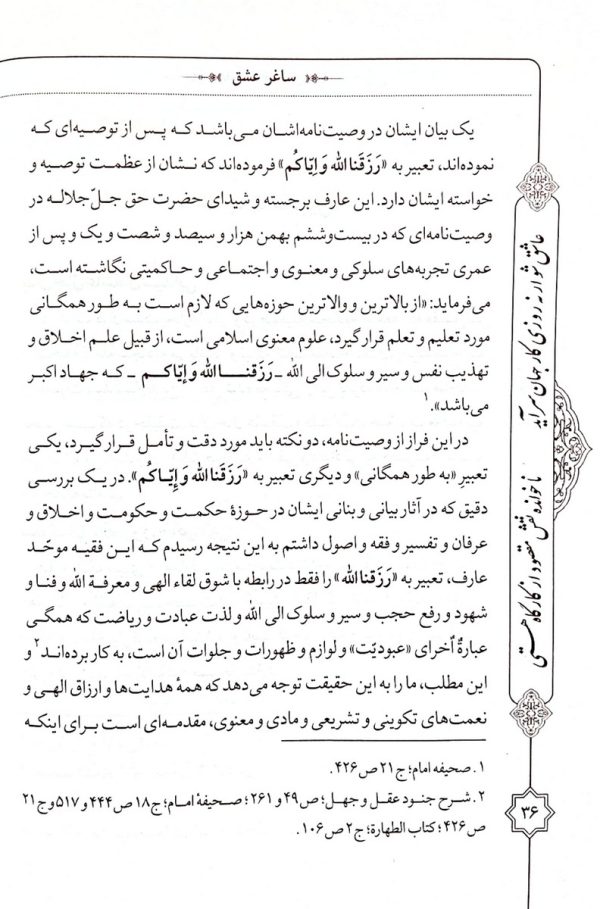 ساغر عشق
یک بیان ایشان در وصیت‌نامه‌اشان می‌باشد که پس از توصیه‌ای که
نموده‌اند، تعبیر به «رَزَقَنا الله وَ اِیّاکُم» فرموده‌اند که نشان از عظمت توصیه و
خواسته ایشان دارد. این عارف برجسته و شیدای حضرت حق جلّ جلاله در
وصیت‌نامه‌ای که در بیست‌وششم بهمن هزار و سیصد و شصت و یک و پس از
عمری تجربه‌های سلوکی و معنوی و اجتماعی و حاکمیتی نگاشته است،
می‌فرماید: «از بالاترین و والاترین حوزه‌هایی که لازم است به طور همگانی
مورد تعلیم و تعلم قرار گیرد، علوم معنوی اسلامی است، از قبیل علم اخلاق و
تهذیب نفس و سیر و سلوک الی الله ـ رَزَقنا الله وَ اِیّاکم ـ که جهاد اکبر
می‌باشد».۱
در این فراز از وصیت‌نامه، دو نکته باید مورد دقت و تأمل قرار گیرد، یکی
تعبیرِ «به طور همگانی» و دیگری تعبیر به «رَزَقَنا الله وَ إِیّاکُم». در یک بررسی
دقیق که در آثار بیانی و بنانی ایشان در حوزهٔ حکمت و حکومت و اخلاق و
عرفان و تفسیر و فقه و اصول داشتم به این نتیجه رسیدم که این فقیه موحّد
عارف، تعبیر به «رَزَقنا الله» را فقط در رابطه با شوق لقاء الهی و معرفة الله و فنا و
شهود و رفع حجب و سیر و سلوک الی الله و لذت عبادت و ریاضت که همگی
عبارةٌ اُخرای «عبودیّت» و لوازم و ظهورات و جلوات آن است، به کار برده‌اند۲ و
این مطلب، ما را به این حقیقت توجه می‌دهد که همهٔ هدایت‌ها و ارزاق الهی و
نعمت‌های تکوینی و تشریعی و مادی و معنوی، مقدمه‌ای است برای اینکه
۱. صحیفه امام؛ ج ۲۱ ص ۴۲۶.
۲. شرح جنود عقل و جهل؛ ص ۴۹ و ۲۶۱؛ صحیفهٔ امام؛ ج ۱۸ ص ۴۴۴ و ۵۱۷ و ج ۲۱
ص ۴۲۶؛ کتاب الطهارة؛ ج ۲ ص ۱۰۶.
عاشق شو ار نه روزی کار جهان سرآید
ناخوانده نقش مقصود از کارگاه هستی
۳۶